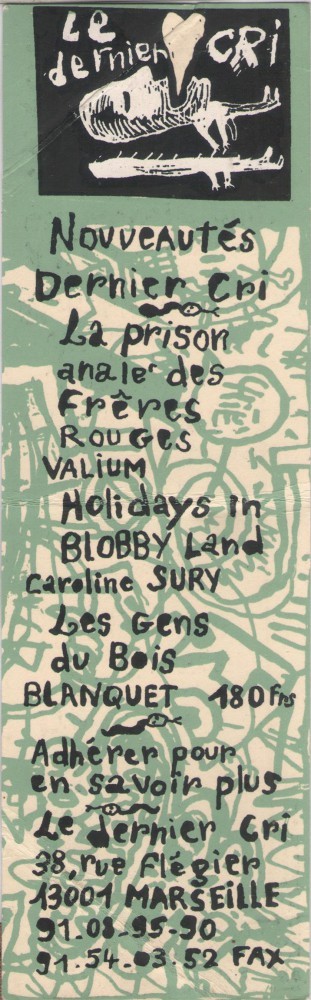 Le
dernier CRi
Nouveautés
Dernier Cri
La prison
anale des
Frères
ROUGES
VALIUM
Holidays in
BLOBBY Land
Caroline SURY
Les Gens
du Bois
BLANQUET 180 Frs
Adhérer pour
en savoir plus
Le dernier Cri
38, rue Flégier
13001 MARSEiLLE
91.08-95-90
91.54.03.52 FAX